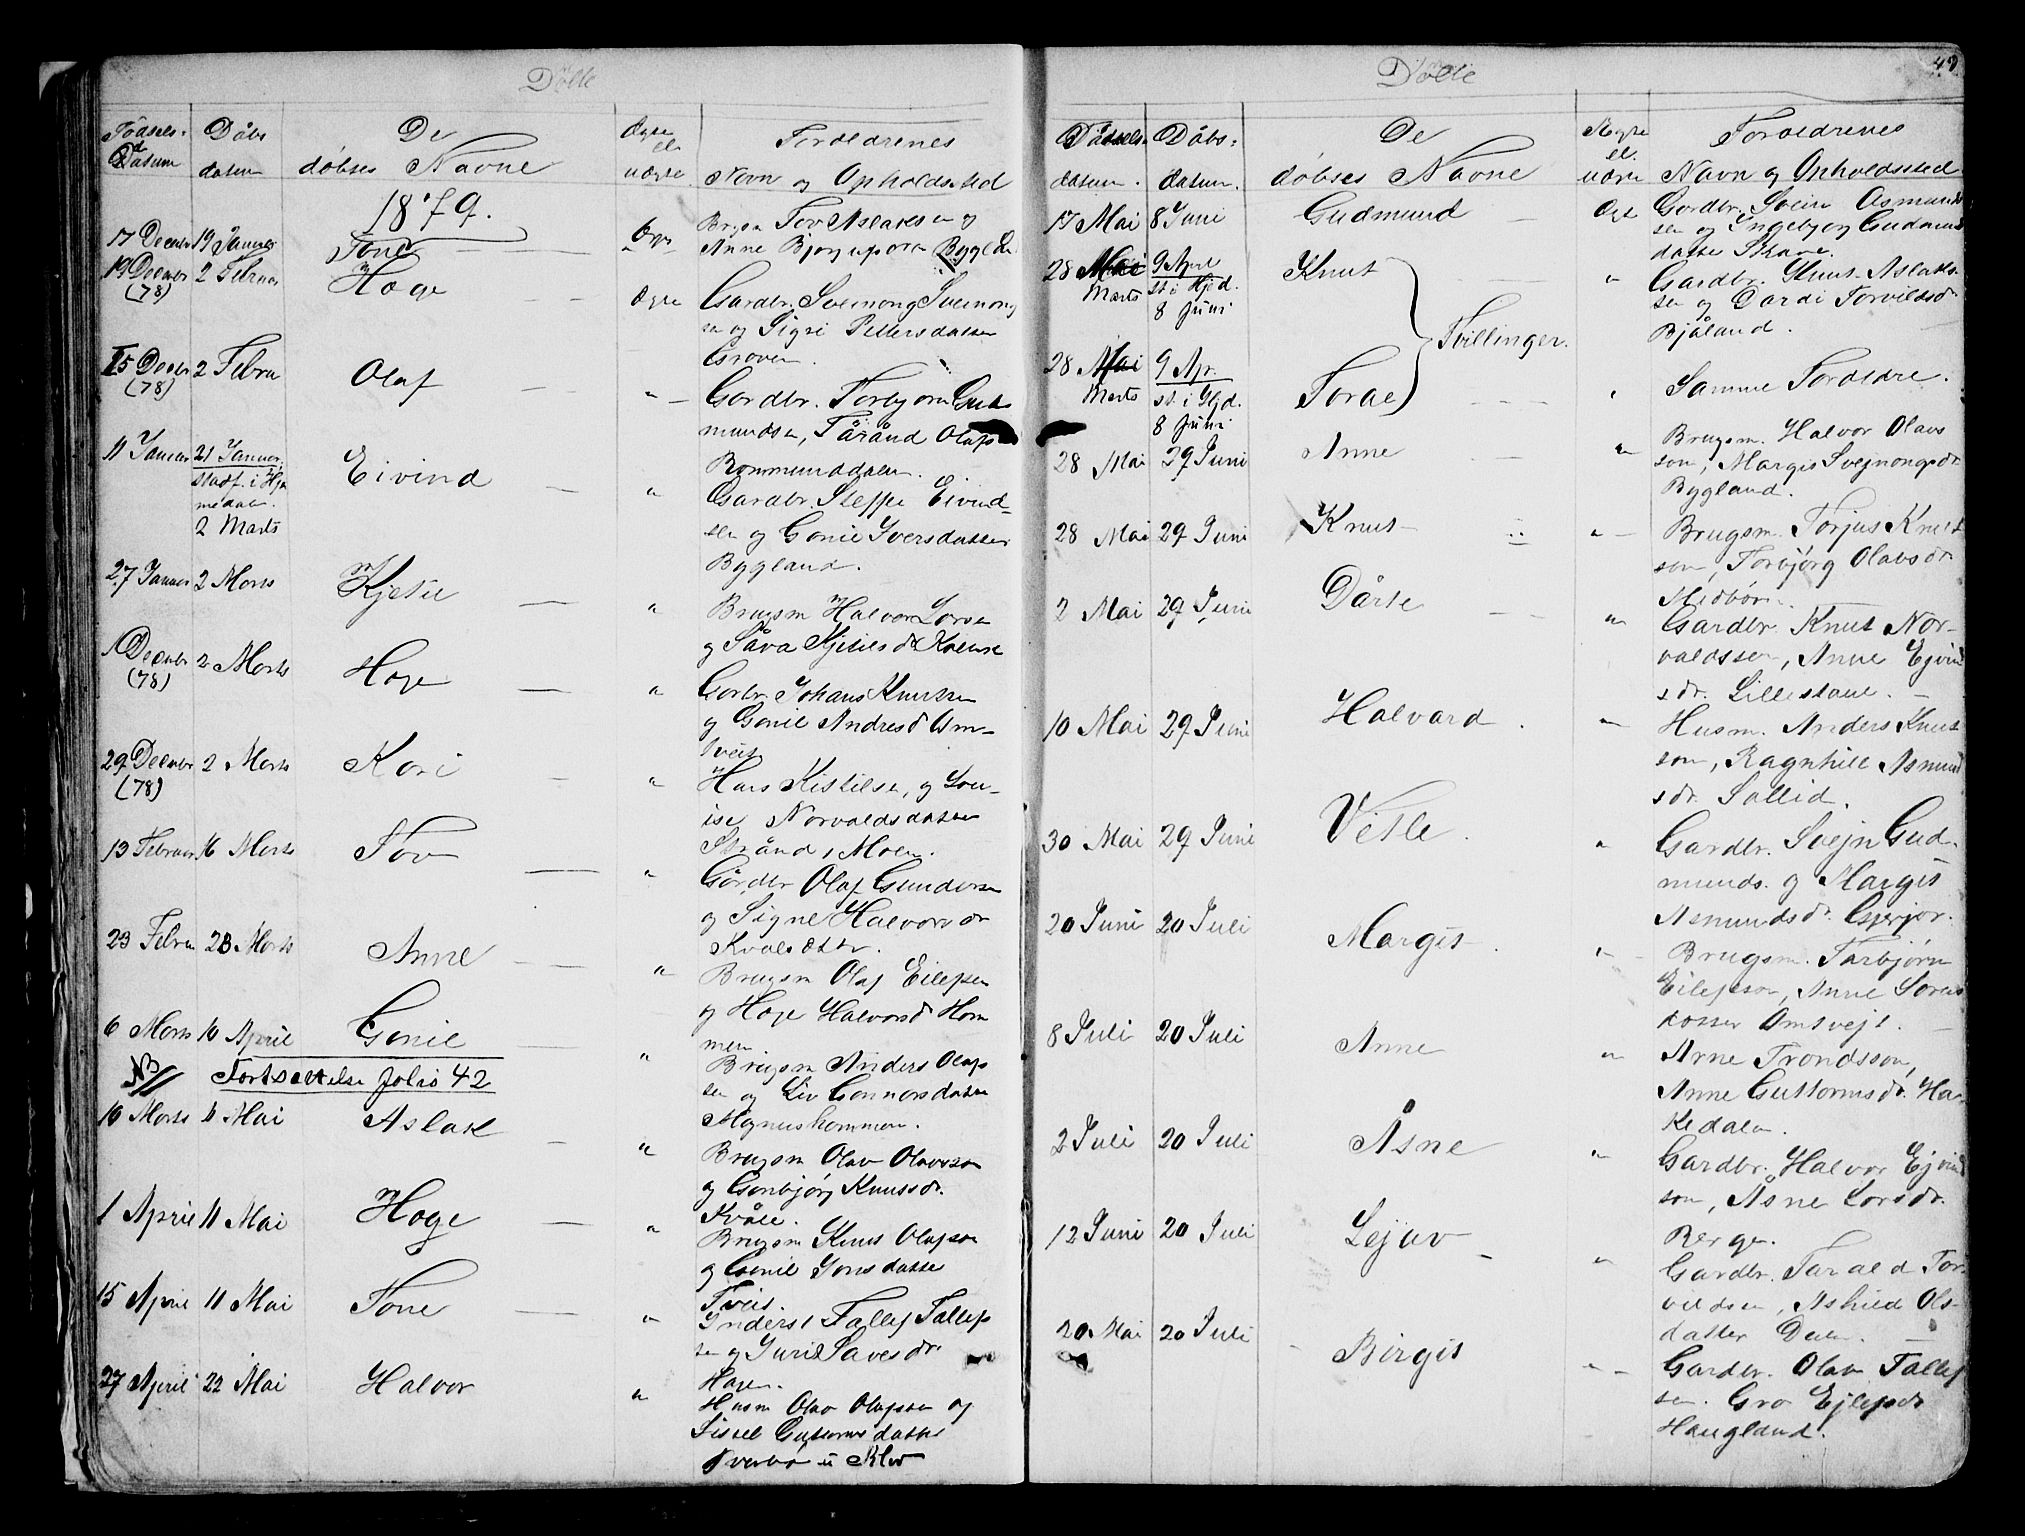 Döbte
Fødsels-
Datum
Døbs
datum
De
døbses Navne
Ægte
el
uægte
Foreldrenes
Navn og Opholdssted
1879.
17 December 19 Januar Tone Ægte
Brugsm Tov Aslaksen og
Anne Bjørgupsen Bygland
19 December 2 Februar Hæge Ægte
(78)
Gardbr. Svenong Svenong
sen og Sigri Pettersdatter
Groven.
15 Decbr 2 Februar Olaf
(78)
Gardbr. Torbjørn Gut
mundsen, Tårånd Olafs
Rommunddalen.
11 Januar 21 Januar Eivind "
stadf. i Hje
medalen.
2 Marts
Gardbr. Steffe Eivind-
sen og Gonil Iversdatter
Bygland.
27 Januar 2 Marts Kjetil "
Brugsm Halvor Larsen
og Såva Kjetilsdr
1 December 2 Marts Hæge "
(78)
Garbr. Johans Knutsen
og Gonil Andresdr Om-
tveit
29 December 2 Marts Kari "
(78)
Hans Kistilsen, og Lou-
ise Norvaldsdatter
Strånd, Moen.
13 Februar 16 Marts Tov "
Gårdbr Olaf Gundersen
og Signe Halvorsdr
Kvalsæter.
23 Februar 23 Marts Anne "
Brugsm Olaf Eilefsen
og Hæge Halvorsdr Hom
men
6 Marts 10 April Gonil "
Brugsm Anders Olafs
sen og Liv Gonnarsdatter
Magnushommen.
NB Fortsættelse folio 42
10 Marts 11 Mai Aslak "
Brugsm Olav Olavsson
og Gonbjørg Knutsdr.
Kvåle.
1 April 11 Mai Hæge "
Brugsm Knut Olafson
og Gonil Jonsdatter
Tveit.
15 April 11 Mai Tone "
Inderst Tallef Tallefs
sen og Guri Savesdr
Hagen.
27 April 22 Mai Halvor "
Husm Olav Olafsen og
Sissel Guttormsdatter
Nverbø u Klev
Döbte
42
Fødsels-
datum.
Døbs-
datum.
De
døbses Navne
Ægte
el.
uægte
Foreldrenes
Navn og Opholdssted
17 Mai 8 Juni Gudmund Ægte
Gardbr. Svein Asmund
sen og Ingebjørg Gudmunds
datter Skare.
28 Mai 9 April Knut "
Marts st. i Hjed.
8 Juni
Gardbr. Knut Aslaks-
sen og Dardi Torvildsdr
Bjåland.
Tvillinger.
28 Mai 9 Apr. Torae "
Marts st. i Hjd.
8 Juni
Samme Foreldre.
28 Mai 29 Juni Anne "
Brugsm. Halvor Olavs
son, Margit Svejnongsdr
Bygland.
28 Mai 29 Juni Knut "
Brugsm. Torjus Knut
son, Torbjörg Olavsdr
Midbön.
2 Mai 29 Juni Dårte "
Gardbr. Knut Nor-
valdssen, Anne Ejvind
sdr. Lillestaul.
10 Mai 29 Juni Halvard "
Husm. Anders Knut
son, Ragnhill Asmund
sdr. Sallid.
30 Mai 29 Juni Vetle "
Gardbr. Svejn Gud-
munds. og Margit
Asmundsdr. Gjerjor.
20 Juni 20 Juli Margit "
Brugsm. Tarbjørn
Eilefson, Anne Lorens
datter Omtvejt.
8 Juli 20 Juli Anne "
Arne Trondsson,
Anne Guttormsdr. Ha-
kedalen.
2 Juli 20 Juli Åsne "
Gardbr. Halvor Ejvind
son, Åsne Larsdr.
Berge.
12 Juni 20 Juli Lejuv "
Gardbr. Tarald Tor
vildsen, Askild Ols-
datter Dalen.
20 Mai 20 Juli Birgit "
Gardbr. Olav Tallef
sen. Gro Ejlefsdr
Haugland.